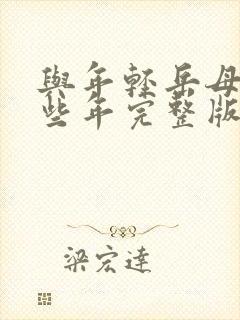 與年輕岳母
些年完整版
梁宏達